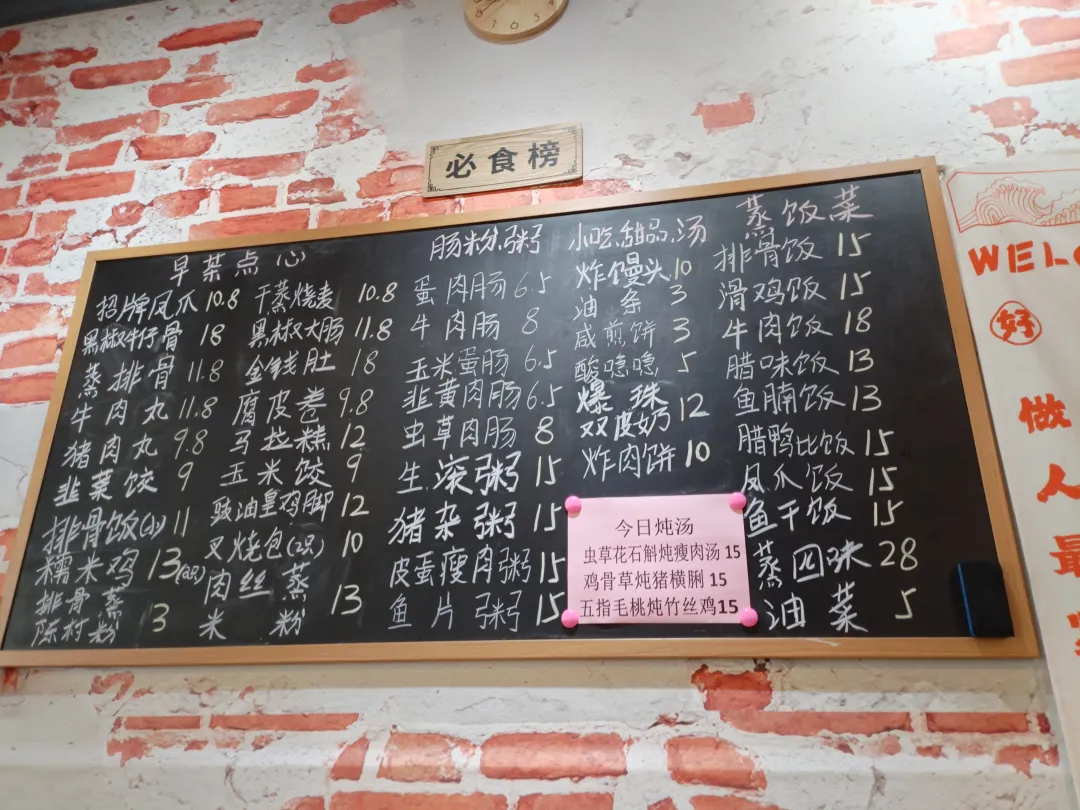 必食榜
早茶点心
招牌凤爪 10.8
黑椒牛仔骨 18
蒸排骨 11.8
牛肉丸 11.8
猪肉丸 9.8
韭菜饺 9
排骨饭(小) 11
糯米鸡 13(2只)
排骨蒸
陈村粉 3
干蒸烧麦 10.8
黑椒大肠 11.8
金钱肚 18
腐皮卷 9.8
马拉糕 12
玉米饺 9
豉油皇鸡脚 12
叉烧包(2只) 10
肉丝蒸
米粉 13
肠粉.粥
蛋肉肠 6.5
牛肉肠 8
玉米蛋肠 6.5
韭黄肉肠 6.5
虫草肉肠 8
生滚粥 15
猪杂粥 15
皮蛋瘦肉粥 15
鱼片粥 15
小吃.甜品.汤
炸馒头 10
油条 3
咸煎饼 3
酸嘢 5
爆珠
双皮奶 12
炸肉饼 10
今日炖汤
虫草花石斛炖瘦肉汤 15
鸡骨草炖猪横脷 15
五指毛桃炖竹丝鸡 15
蒸饭菜
排骨饭 15
滑鸡饭 15
牛肉饭 18
腊味饭 13
鱼腩饭 13
腊鸭比饭 15
凤爪饭 15
鱼干饭 15
蒸四味 28
油菜 5
WEL
好
做
人
最